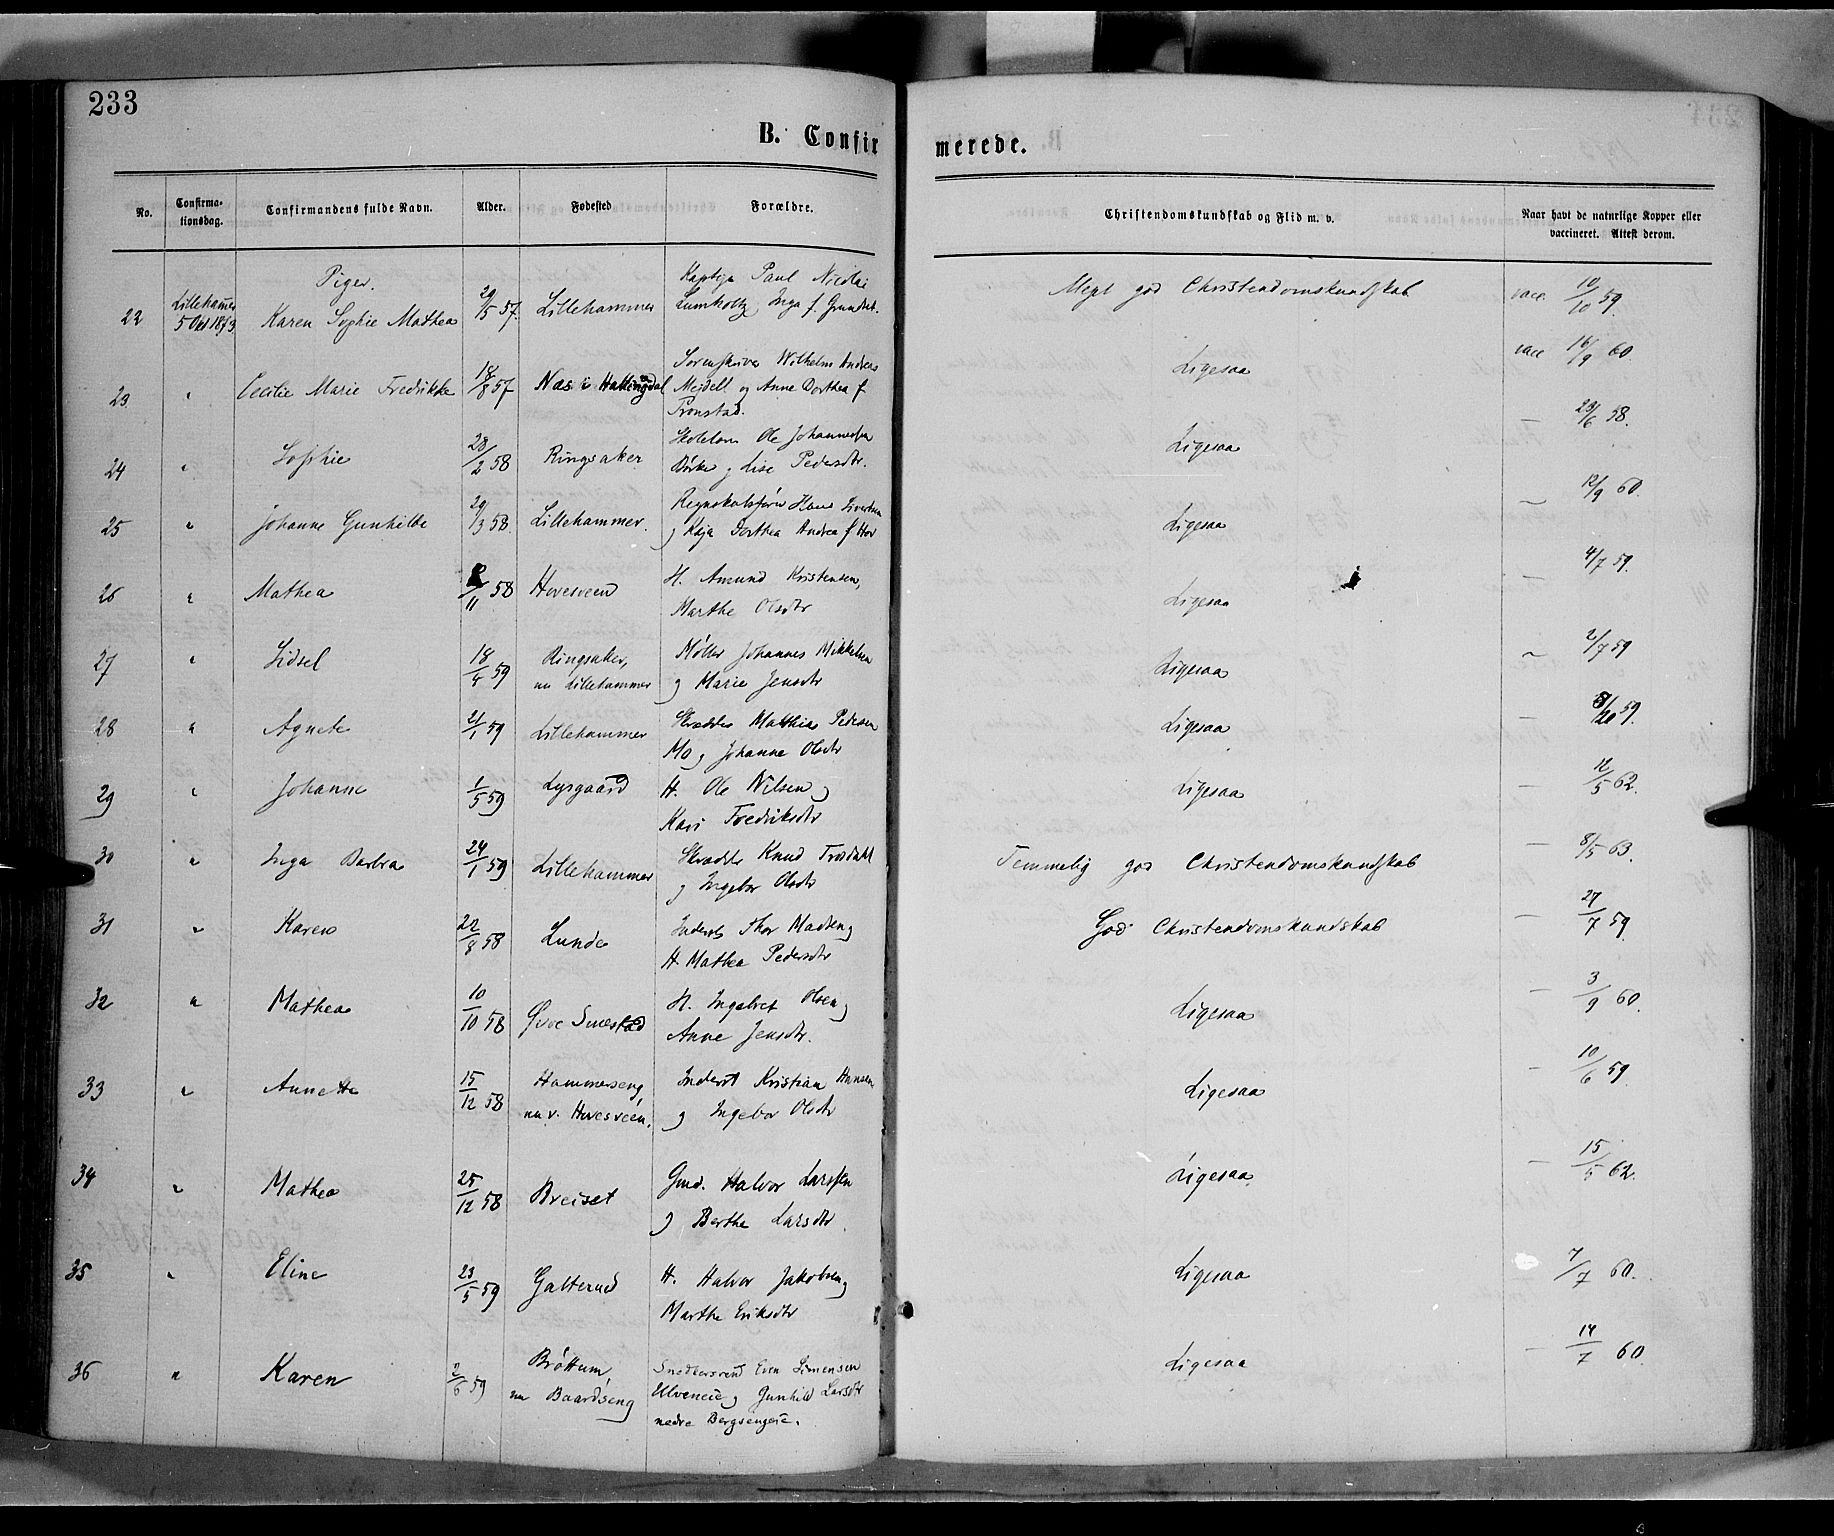 233
B. Confir merede.
No. Confirma- tionsdag. Confirmandens fulde Navn. Alder. Fødested Forældre. Christendomskundskab og Flid m. v. Naar havt de naturlige Kopper eller vaccineret. Attest derom.
Piger.
22 Lillehammer 5 Okt 1873. Karen Sophie Mathea 29/5 57. Lillehammer Paul Nicolai Lumholtz, Inga f. Meget god Christendomskundskab vacc. 10/10 59.
23 " Cecilie Marie Fredrikke 18/8 57 Næs i Hallingdal Sorenskriver Wilhelm Andreas Mejdell og Anne Dorthea f. Tronstad. Ligesaa vacc 16/9 60
24 " Sophie 28/2 58 Ringsaker Ole Johannessen og Lise Pedersdtr. Ligesaa — 23/6 58.
25 " Johanne Gunhilde 29/3 58. Lillehammer. Regnskabsfører Hans og Kaja Dorthea Andrea f. Hov Ligesaa — 12/9 60.
26 " Mathea /11 58 Hovesveen H. Amund Kristensen, Marthe Olsdtr Ligesaa — 4/7 59.
27 " Sidsel 18/5 59 Ringsaker, nu Lillehammer Møller Johannes Mikkelsen og Marie Jensdtr Ligesaa — 2/7 59
28 " Agnete 21/1 59 Lillehammer Skrædder Matthias Pedersen Mo og Johanne Olsdtr Ligesaa — 59.
29 " Johanne 1/5 59 Lysgaard H. Ole Nilsen og Kari Fredriksdtr Ligesaa — 12/5 62.
30 " Inga Barbra 24/1 59 Lillehammer Skrædder Knud og Ingebor Olsdtr Temmelig god Christendomskundskab — 8/5 63.
31 " Karen 22/8 58 Lunde Inderst Thor Madsen og H. Mathea Pedersdtr God Christendomskundskab — 27/7 59.
32 " Mathea 10/10 58 Øvre Smestad H. Ingebret Olsen og Anne Jensdtr. Ligesaa — 3/9 60.
33 " Annette 15/12 58 Hammerseng nu v. Hovesveen. Inderst Kristian Hansen og Ingebor Olsdtr Ligesaa — 10/6 59
34 " Mathea 25/12 58 Breiset Gmd. Halvor Larssen og Berthe Larsdtr. Ligesaa — 15/5 62.
35 " Eline 23/5 59 Galterud H. Halvor Jakobsen og Marthe Eriksdtr Ligesaa 7/7 60.
36 " Karen 2/6 59 Brøttum, nu Baardseng Snedkersvend Even Simensen Ulveneie og Gunhild Larsdtr nedre Bergsengeie. Ligesaa — 14/7 60.